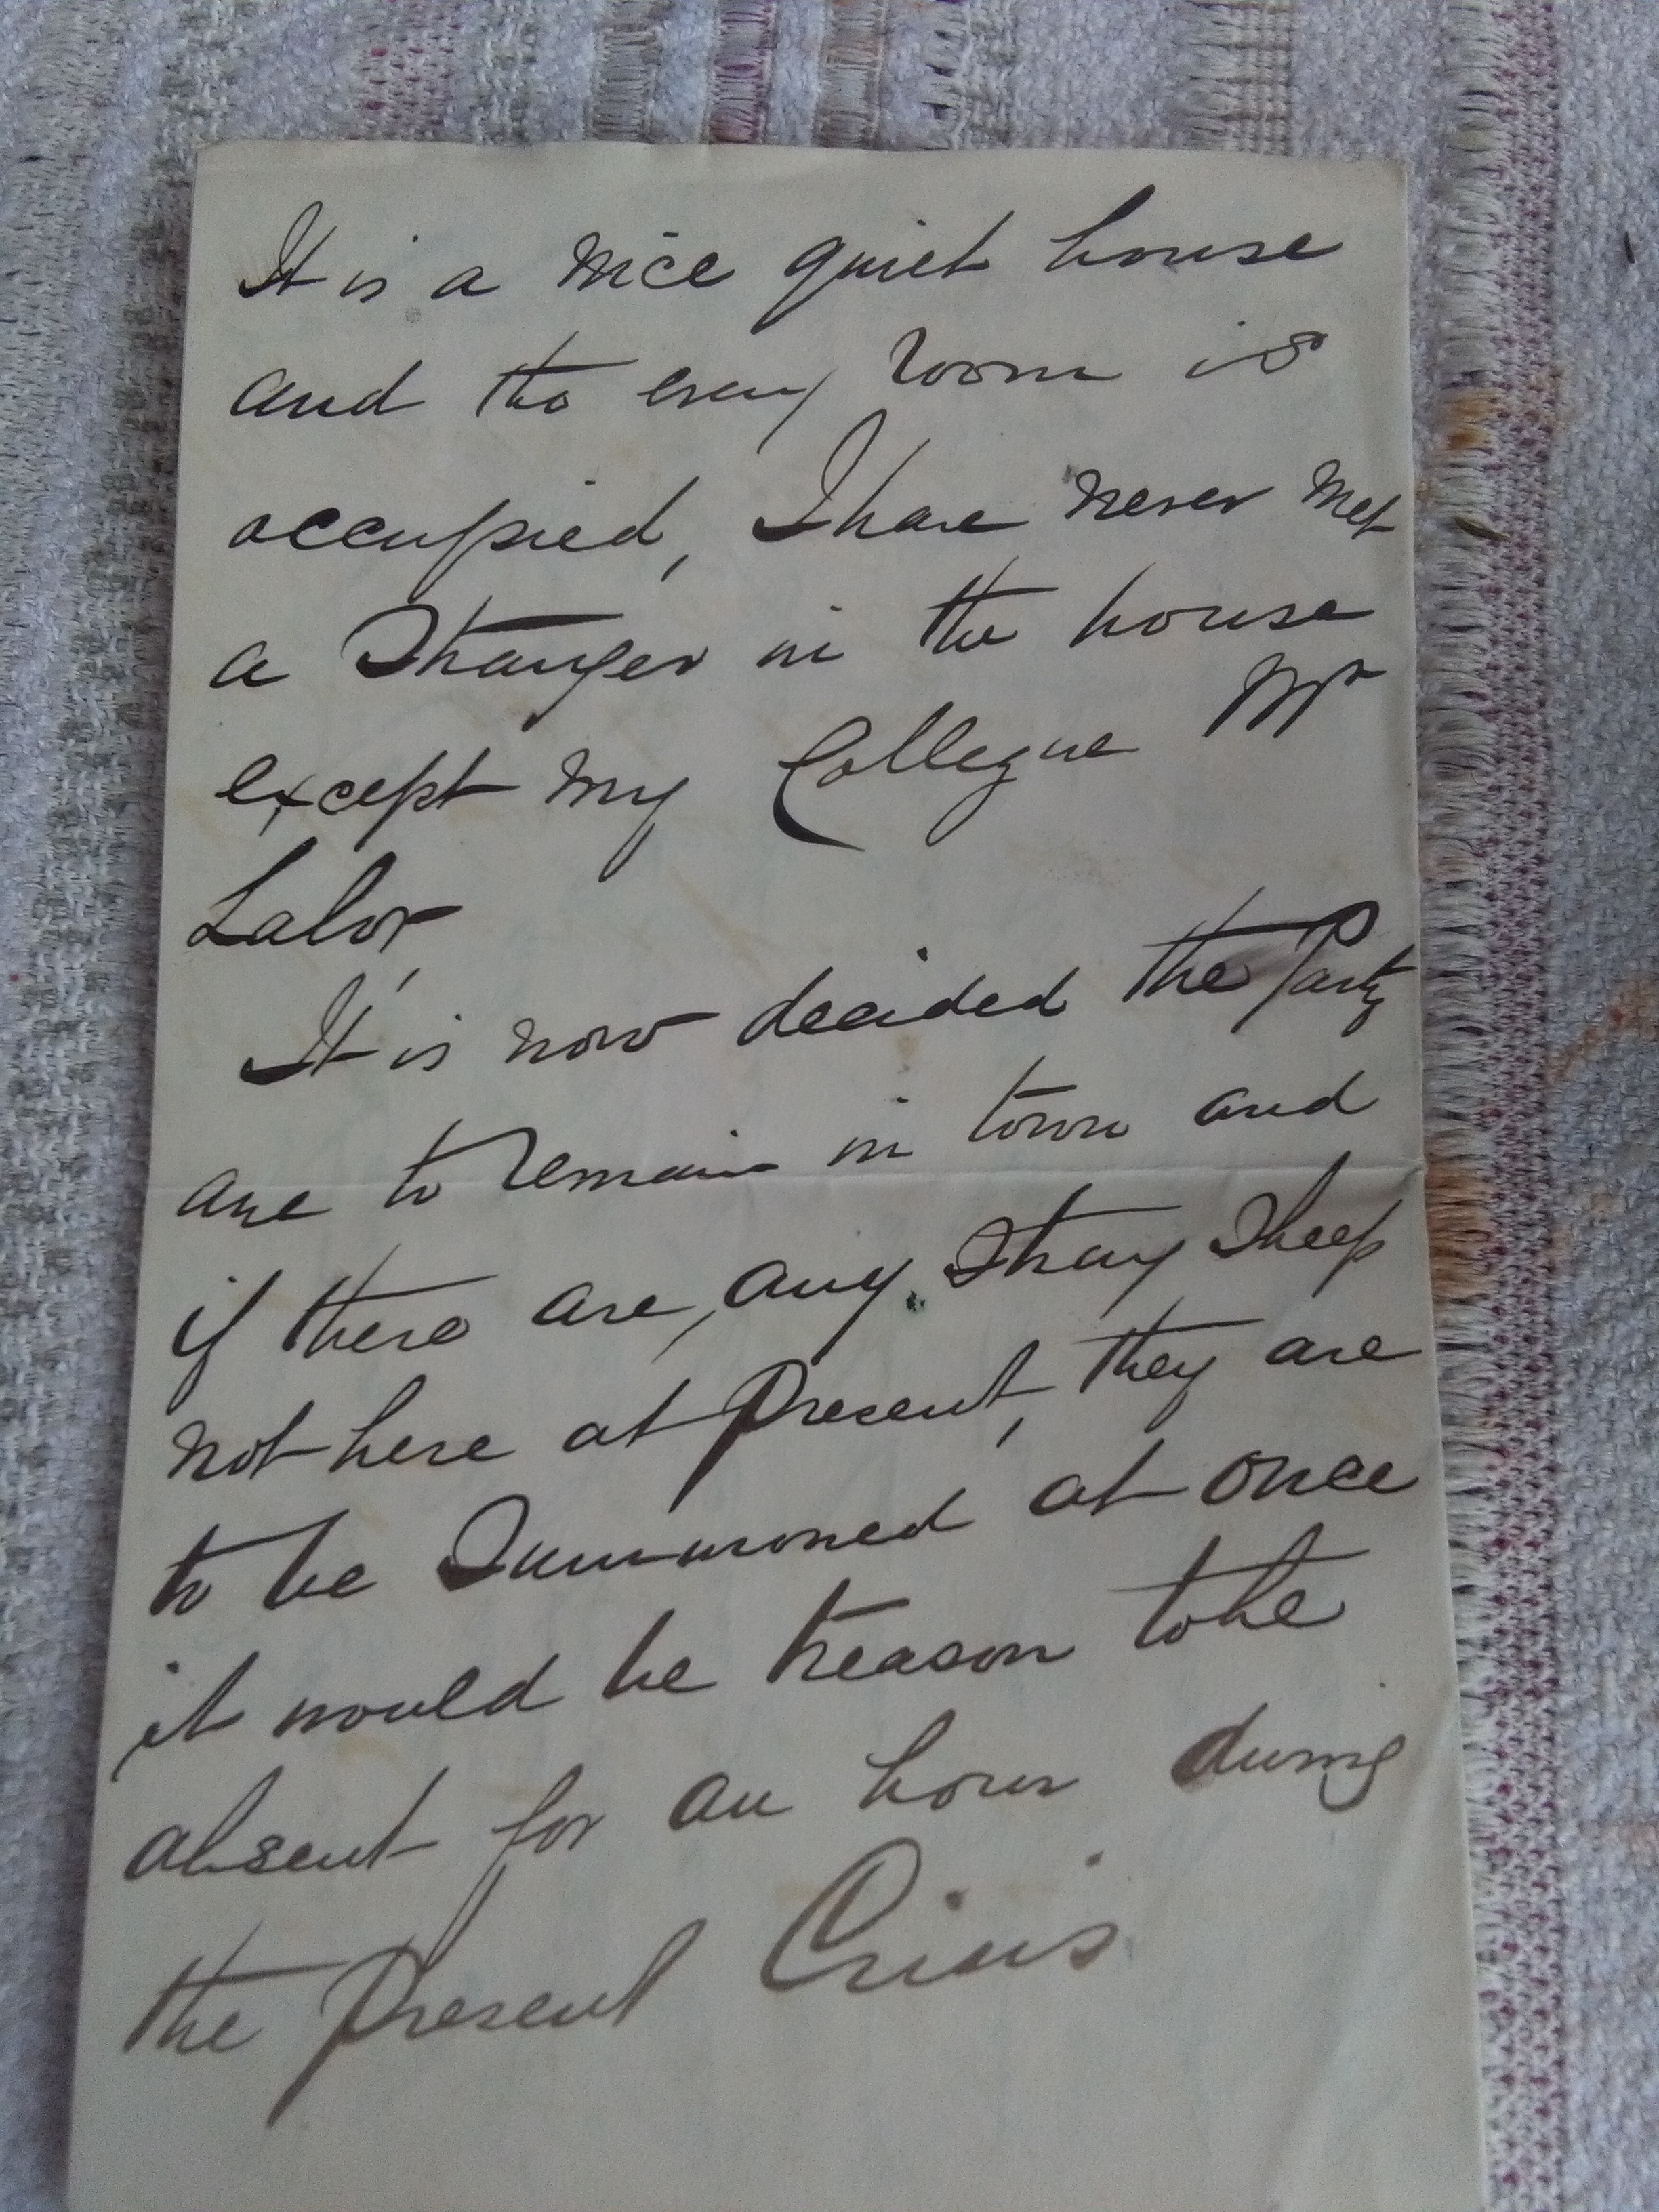 It is a nice quiet house
and tho every room is
occupied, I have never met
a Stranger in the house
except my Collegue Mr
Lalor,
It is now decided the Party
are to remain in town and
if there are, any Stray Sheep
not here at Present, they are
to be Summoned at once
it would be treason to be
absent for an hour during
the Present Crisis